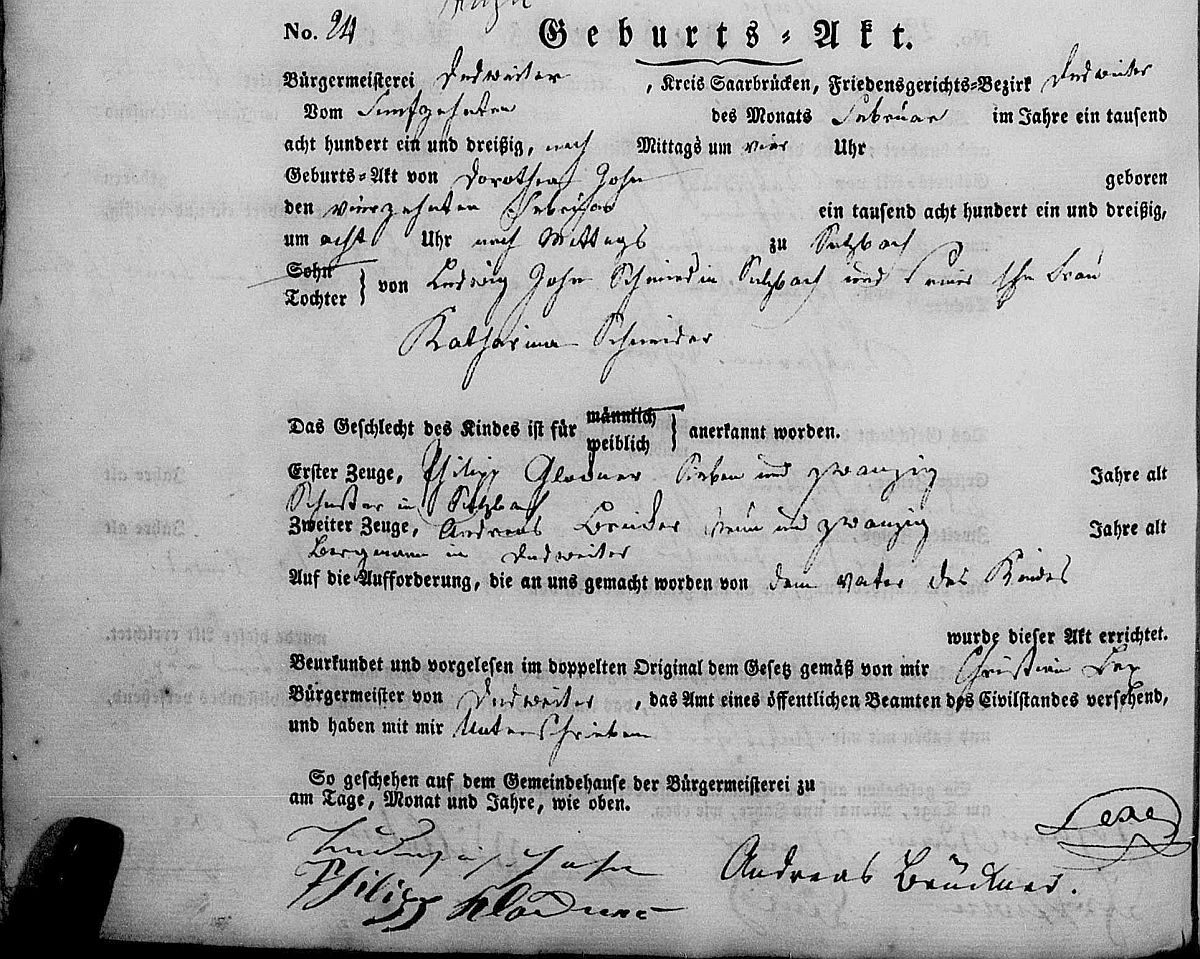 No. 24 Geburts-Akt.
Bürgermeisterei Dudweiler, Kreis Saarbrücken, Friedensgerichts-Bezirk Dudweiler
Vom Fünfzehnten des Monats Februar im Jahre ein tausend
acht hundert ein und dreißig, nach Mittags um vier Uhr
Geburts-Akt von Dorothea John geboren
den vierzehnten Februar ein tausend acht hundert ein und dreißig,
um acht Uhr nach Mittags zu Sulzbach
Sohn
Tochter } von Ludwig John Schmied in Sulzbach und seiner Ehe Frau
Katharina Schneider
Das Geschlecht des Kindes ist für männlich
weiblich } anerkannt worden.
Erster Zeuge, Philipp Sieben und zwanzig Jahre alt
Schuster in Sulzbach
Zweiter Zeuge, Andreas neun und zwanzig Jahre alt
Bergmann in Dudweiler
Auf die Aufforderung, die an uns gemacht worden von dem Vater des Kindes
wurde dieser Akt errichtet.
Beurkundet und vorgelesen im doppelten Original dem Gesetz gemäß von mir Christian
Bürgermeister von Dudweiler, das Amt eines öffentlichen Beamten des Civilstandes versehend,
und haben mit mir Unterschrieben
So geschehen auf dem Gemeindehause der Bürgermeisterei zu
am Tage, Monat und Jahre, wie oben.
Andreas Brückner.
Philipp